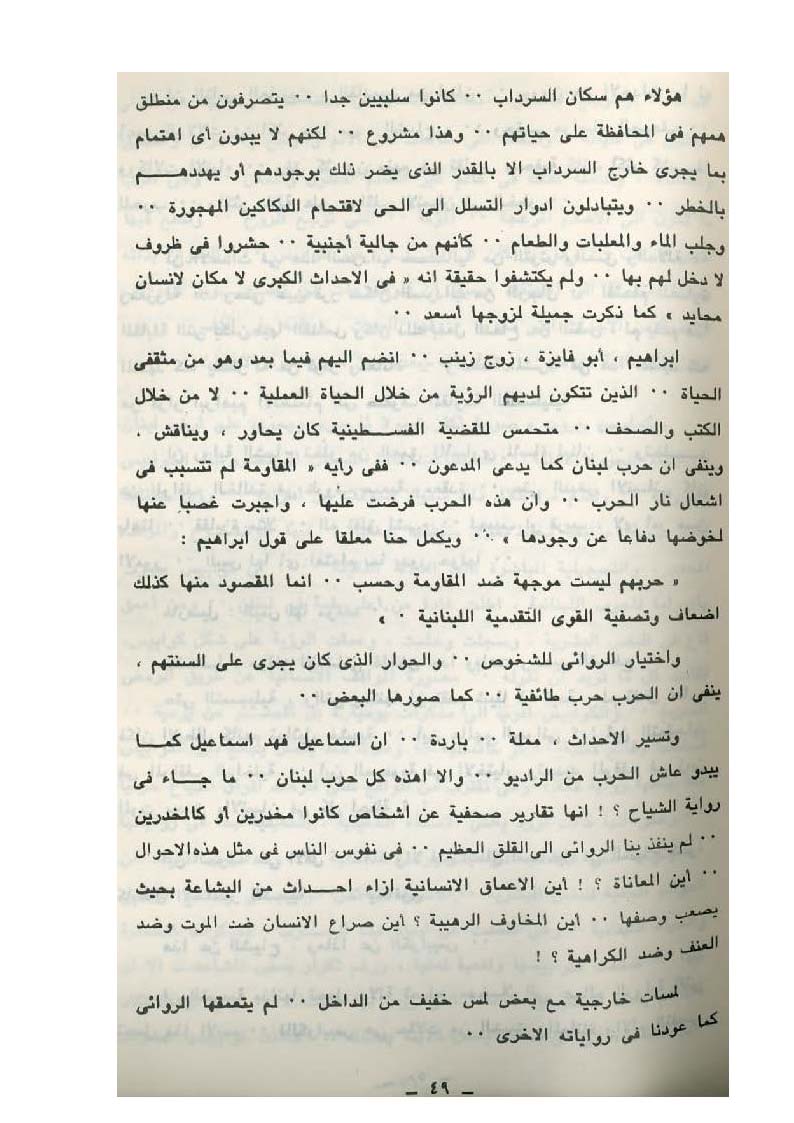 هؤلاء هم سكان السرداب ٠٠ كانوا سلبيين جدا ٠٠ يتصرفون من منطلق
همهم فى المحافظة على حياتهم ٠٠ وهذا مشروع ٠٠ لكنهم لا يبدون أى اهتمام
بما يجرى خارج السرداب الا بالقدر الذى يضر ذلك بوجودهم أو يهددهــــم
بالخطر ٠٠ ويتبادلون ادوار التسلل الى الحى لاقتحام الدكاكين المهجورة ٠٠
وجلب الماء والمعلبات والطعام ٠٠ كأنهم من جالية أجنبية ٠٠ حشروا فى ظروف
لا دخل لهم بها ٠٠ ولم يكتشفوا حقيقة انه « فى الاحداث الكبرى لا مكان لانسان
محايد » كما ذكرت جميلة لزوجها أسعد ٠٠
ابراهيم ، أبو فايزة ، زوج زينب ٠٠ انضم اليهم فيما بعد وهو من مثقفى
الحياة ٠٠ الذين تتكون لديهم الرؤية من خلال الحياة العملية ٠٠ لا من خلال
الكتب والصحف ٠٠ متحمس للقضية الفســطينية كان يحاور ، ويناقش ،
وينفى ان حرب لبنان كما يدعى المدعون ٠٠ ففى رايه « المقاومة لم تتسبب فى
اشعال نار الحرب ٠٠ وان هذه الحرب فرضت عليها ، واجبرت غصبا عنها
لخوضها دفاعا عن وجودها » ٠٠ ويكمل حنا معلقا على قول ابراهيم :
« حربهم ليست موجهة ضد المقاومة وحسب ٠٠ انما المقصود منها كذلك
اضعاف وتصفية القوى التقدمية اللبنانية ٠ »
واختيار الروائى للشخوص ٠٠ والحوار الذى كان يجرى على السنتهم ،
ينفى ان الحرب حرب طائفية ٠٠ كما صورها البعض ٠٠
وتسير الاحداث ، مملة ٠٠ باردة ٠٠ ان اسماعيل فهد اسماعيل كمــا
يبدو عاش الحرب من الراديو ٠٠ والا اهذه كل حرب لبنان ٠٠ ما جــاء فى
رواية الشياح ؟ ! انها تقارير صحفية عن اشخاص كانوا مخدرين أو كالمخدرين
٠٠ لم ينفذ بنا الروائى الى القلق العظيم ٠٠ فى نفوس الناس فى مثل هذه الاحوال
٠٠ أين المعاناة ؟ ! أين الاعماق الانسانية ازاء احــداث من البشاعة بحيث
يصعب وصفها ٠٠ أين المخاوف الرهيبة ؟ أين صراع الانسان ضد الموت وضد
العنف وضد الكراهية ؟ !
لمسات خارجية مع بعض لمس خفيف من الداخل ٠٠ لم يتعمقها الروائى
كما عودنا فى رواياته الاخرى ٠٠
ــ ٤٩ ــ